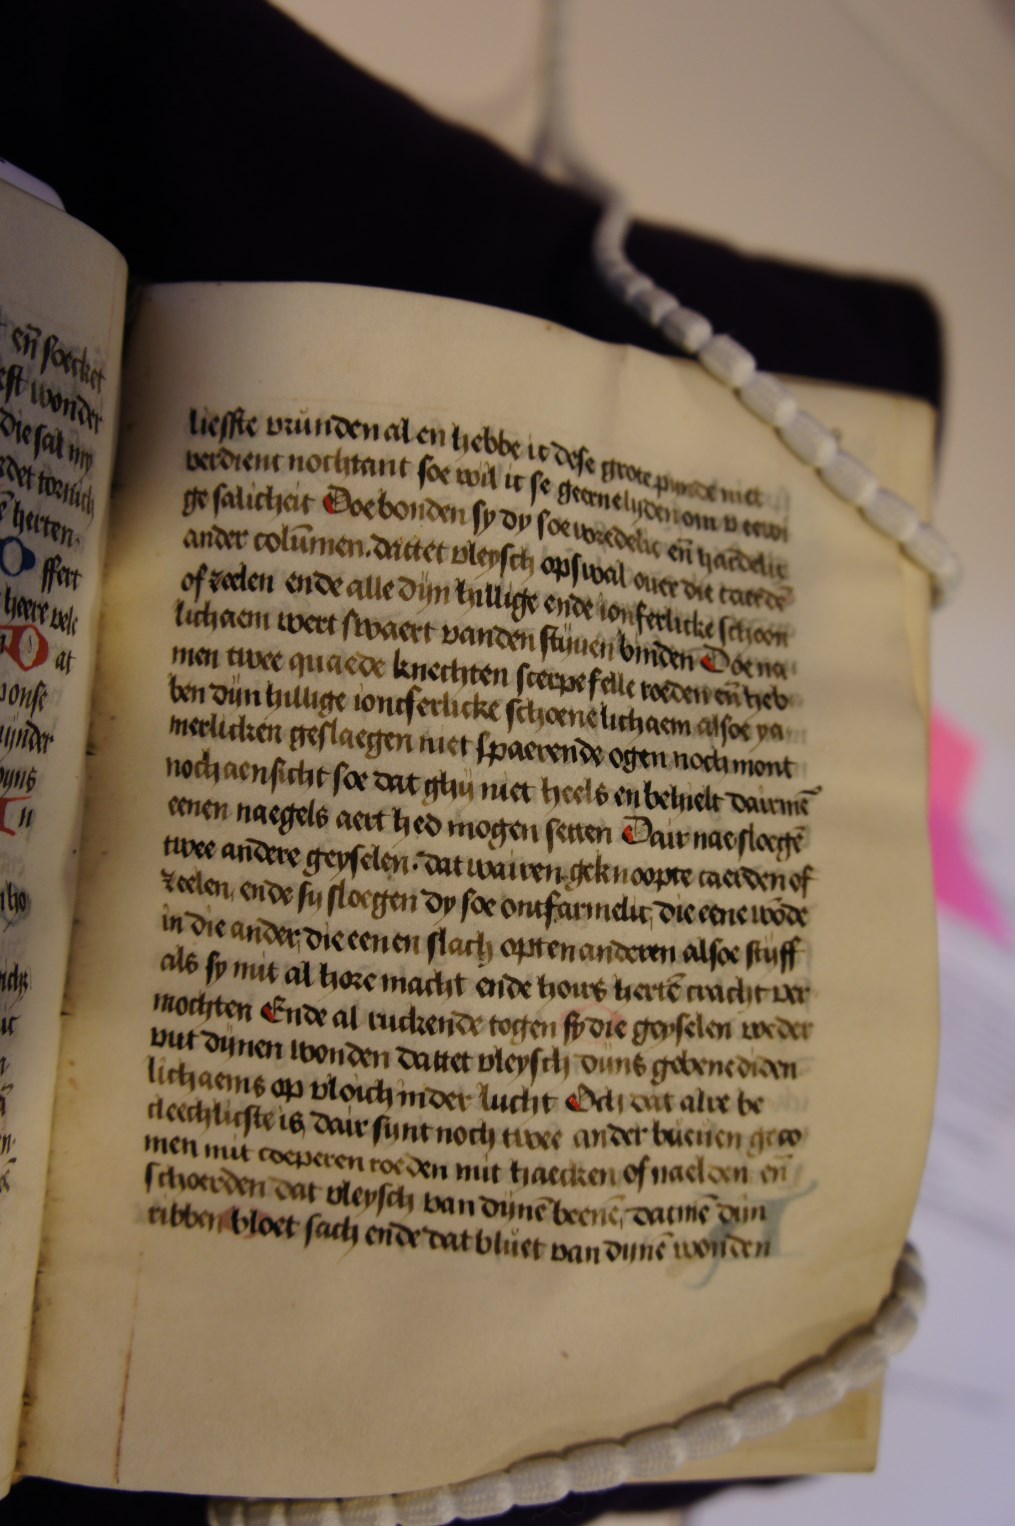 en̄ soecket
wonder
die sal my
tornich
herten.
O ffert
heere vele
at
ponse
liefste vrunden al en hebbe ic dese grote pijnde niet
verdient nochtant soe wil ic se geerne lijden om v eewi
ge salicheit Doe bonden sy dy soe wredelic en̄ hardelic
ander colūmen. dattet vleysch op swal ouer die taerdē
of zeelen ende alle dijn hillige ende ionferlicke schoon
lichaem wert swaert vanden stijuen binden Doe na
men twee quaede knechten scerpe felle roeden en̄ heb
ben dijn hillige ioncferlicke schoene lichaem alsoe ya
merlicken geslaegen niet spaerende ogen noch mont
noch aensicht soe dat ghij niet heels en behielt dairmē
eenen naegels aert hed mogen setten Dair nae sloegē
twee andere geyselen. dat wairen geknoopte taerden of
zeelen, ende sy sloegen dy soe ontfarmelic, die eene wōde
in die ander, die eenen slach opten anderen alsoe stijff
als sy mit al hore macht ende hoirs hertē cracht ver
mochten Ende al ruckende togen sy die geyselen weder
vut dijnen wonden dattet vleysch dijns gebenediden
lichaems op vloich inder lucht Och dat alre be
cleechlicste is, dair sijnt noch twee ander bueuen geco
men mit coeperen roeden mit haecken of naelden en̄
schoerden dat vleysch van dijnē beenē, datmē dijn
ribben bloet sach ende dat bluet van dijnē wonden